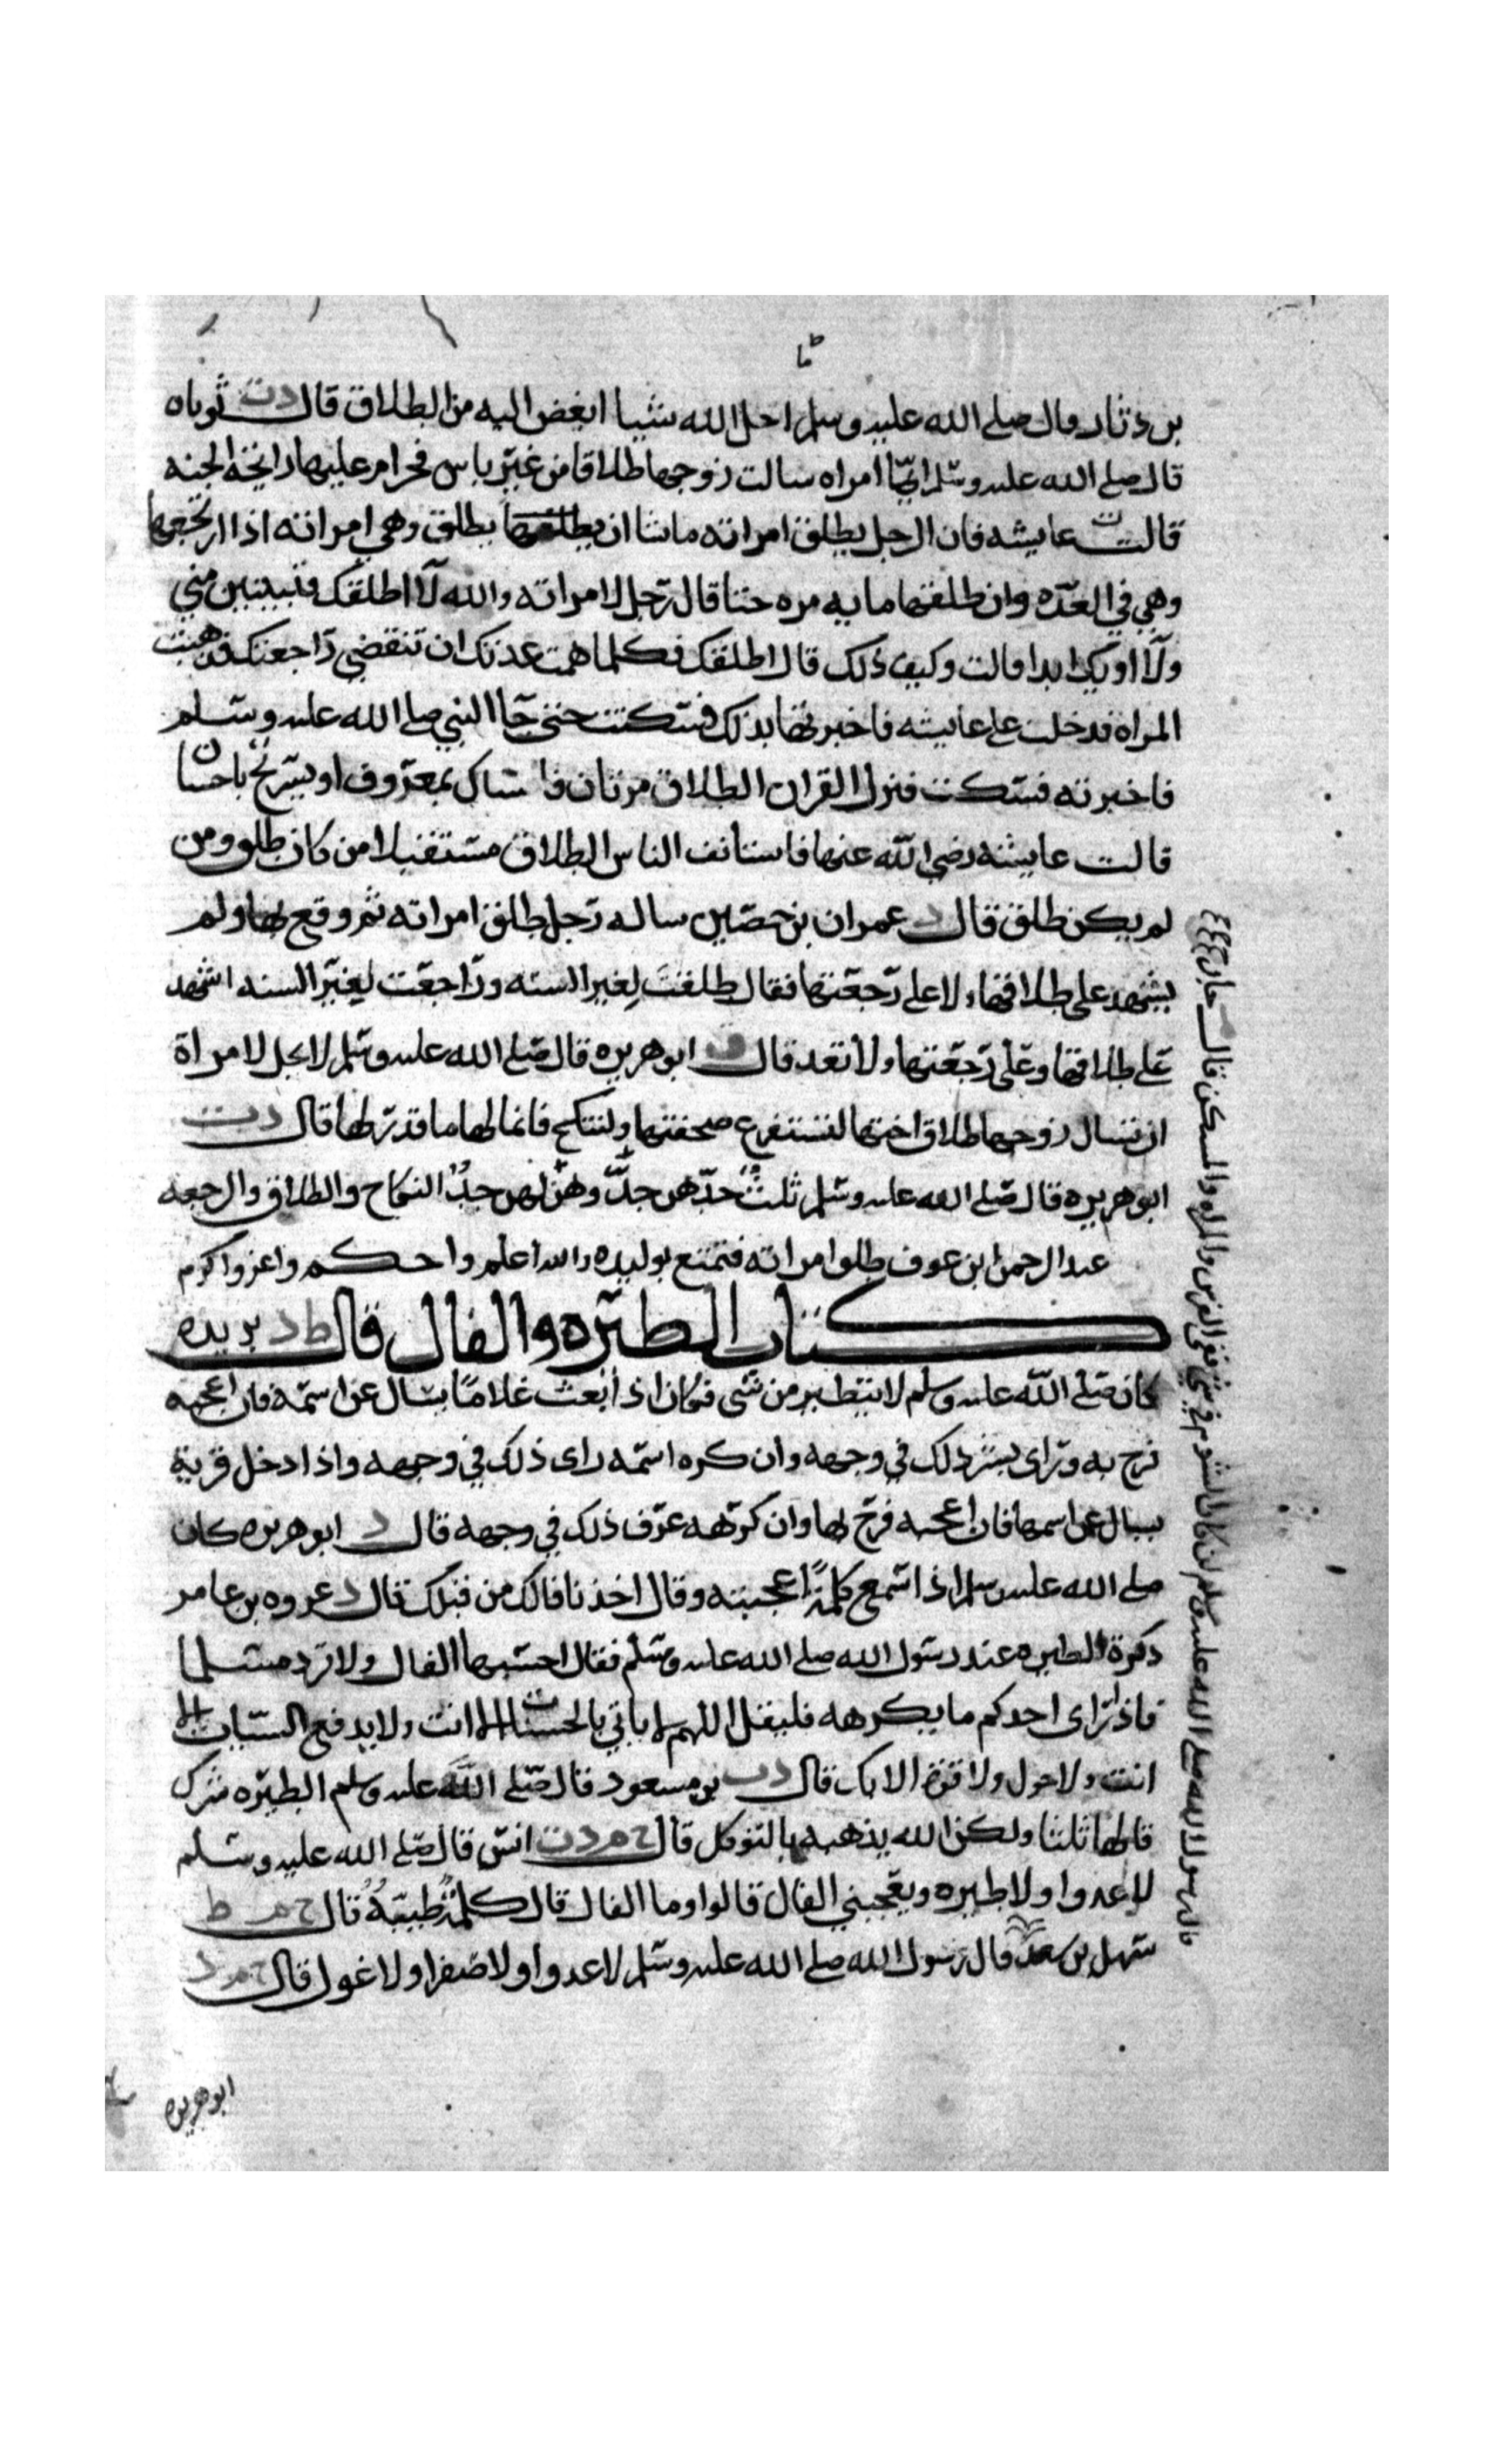 بن دثار قال صلى الله عليه وسلم ما احل الله شيا ابغض اليه من الطلاق قال دت ثوبان
قال صلى الله عليه وسلم ايما امراه سالت زوجها طلاقا من غير باس فحرام عليها رايحة الجنه
قال ت عايشه فان الرجل يطلق امراته ماشا ان يطلق وهي امراته اذا ارتجعها
وهي في العده وان طلقها مايه مره حتا قال رجل لامراته والله لا اطلقك فتبينين مني
ولا اويك ابدا قالت وكيف ذلك قال اطلقك فكلما همت عدتك ان تنقضي راجعتك فذهبت
المراة فدخلت على عايشه فاخبرتها بذلك فسكتت حتى جا النبي صلى الله عليه وسلم
فاخبرته فسكت فنزل القران الطلاق مرتان فامساك بمعروف او تسريح باحسان
قالت عايشه رضي الله عنها فاستانف الناس الطلاق مستقبلا من كان طلق ومن
لم يكن طلق قال د عمران بن حصين ساله رجل طلق امراته ثم وقع بها ولم
يشهد على طلاقها ولا على رجعتها فقال طلقت لغير السنه وراجعت لغير السنه اشهد
على طلاقها وعلى رجعتها ولا تعد قال ابو هريره قال صلى الله عليه وسلم لا يحل لامراة
ان تسال زوجها طلاق اختها لتستفرغ صحفتها ولتنكح فانما لها ما قدر لها قال دت
ابو هريره قال صلى الله عليه وسلم ثلث جدهن جد وهزلهن جد النكاح والطلاق والرجعه
عبد الرحمن ابن عوف طلق امراته فتمتع بوليده والله اعلم واحكم واعز واكرم
كتاب الطيره والفال قال ط د بريده
كان صلى الله عليه وسلم لا يتطير من شي فكان اذا بعث غلاما يسال عن اسمه فان اعجبه
فرح به وراى بشر ذلك في وجهه وان كره اسمه راى ذلك في وجهه واذا دخل قرية
يسال عن اسمها فان اعجبه فرح بها وان كرهه عرف ذلك في وجهه قال د ابو هريره كان
صلى الله عليه وسلم اذا سمع كلمة اعجبته وقال اخذنا فالك من فيك قال د عروه بن عامر
ذكرة الطيره عند رسول الله صلى الله عليه وسلم فقال احسنها الفال ولا ترد مسلما
فاذا راى احدكم ما يكرهه فليقل اللهم لا ياتي بالحسنات الا انت ولا يدفع السيات الا
انت ولا حول ولا قوة الا بك قال دت بن مسعود قال صلى الله عليه وسلم الطيره شرك
قالها ثلثا ولكن الله يذهبه بالتوكل قال خ م د ت انس قال صلى الله عليه وسلم
لا عدوا ولا طيره ويعجبني الفال قالوا وما الفال قال كلمة طيبة قال خ م ط
سهل بن سعد قال رسول الله صلى الله عليه وسلم لا عدوا ولا صفرا ولا غول قال خ م د
ابو هريره
قال رسول الله صلى الله عليه وسلم ان كان الشوم في شي ففي الفرس والمراه والمسكن قال جابر